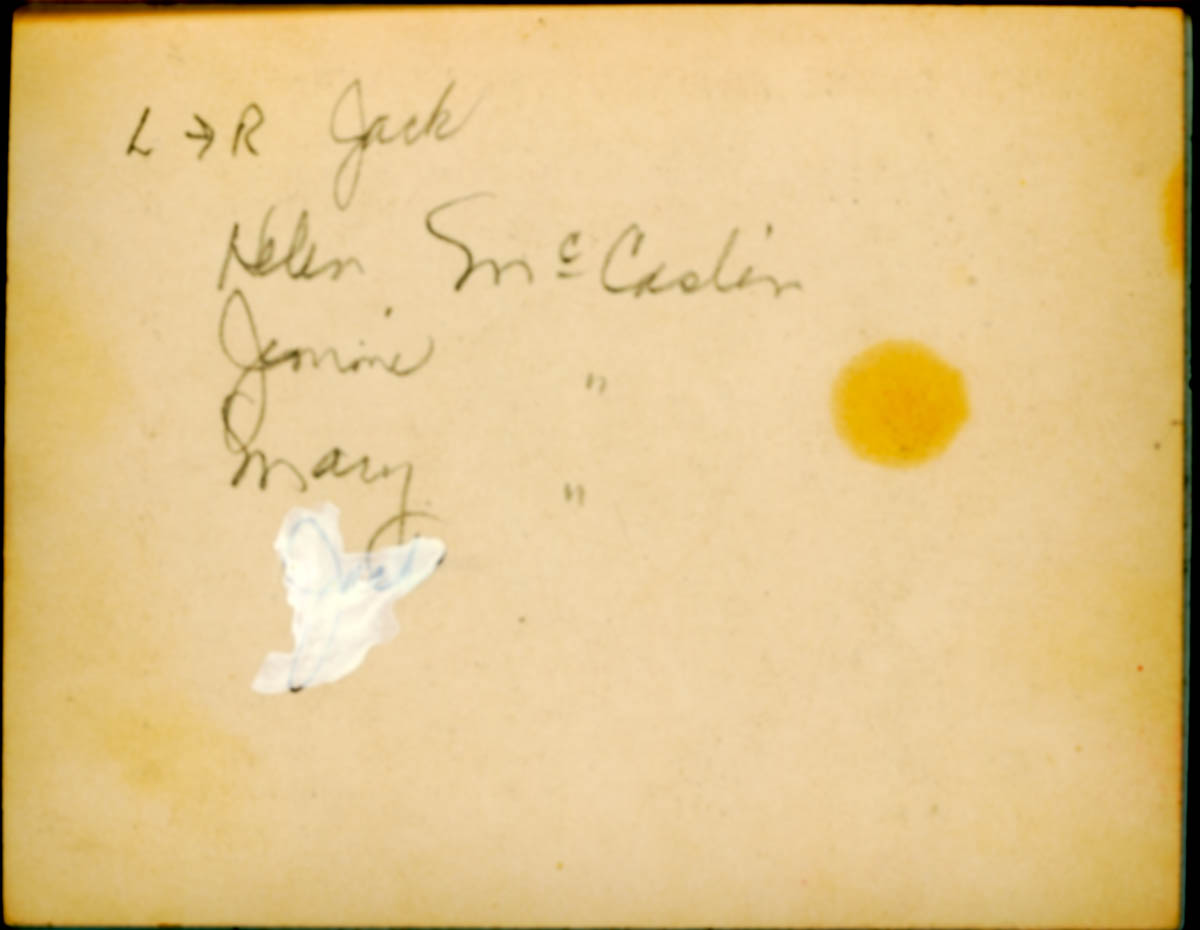 L → R Jack
Helen McCaslin
Jimmie "
Mary "